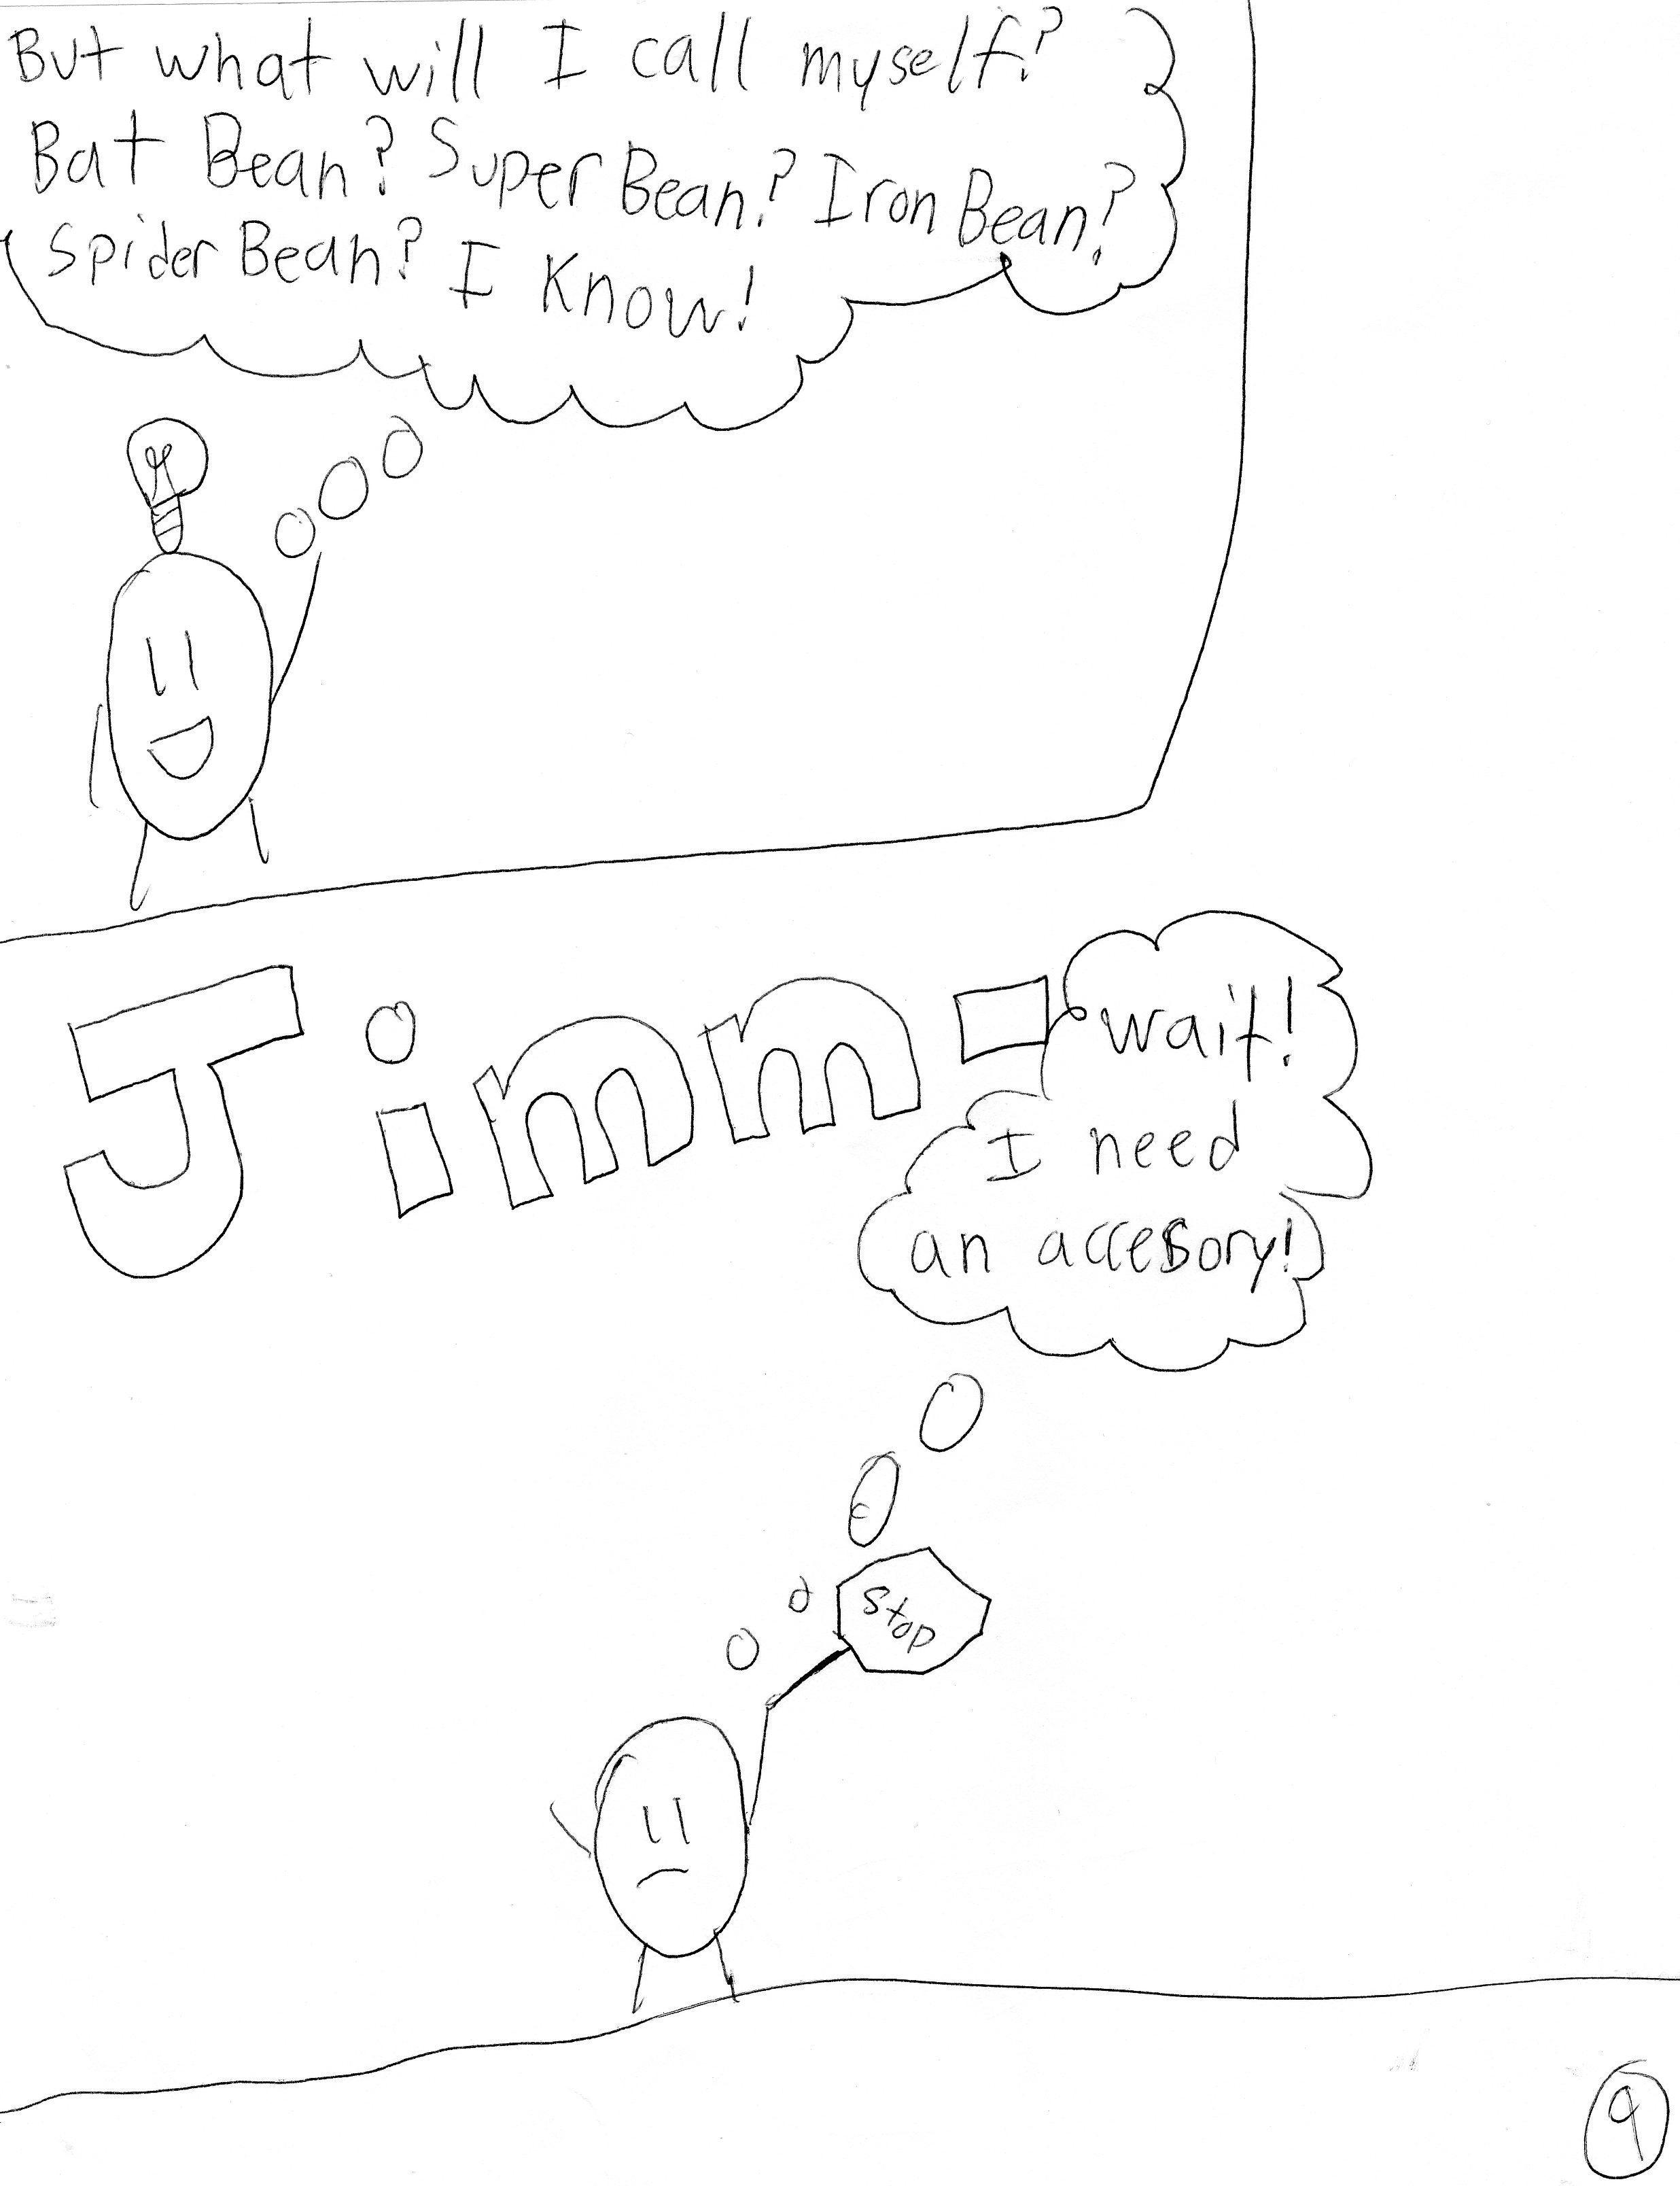 But what will I call myself?
Bat Bean? Super Bean? Iron Bean?
Spider Bean? I Know!
Jimm-
wait!
I need
an accessory!
Stop
9